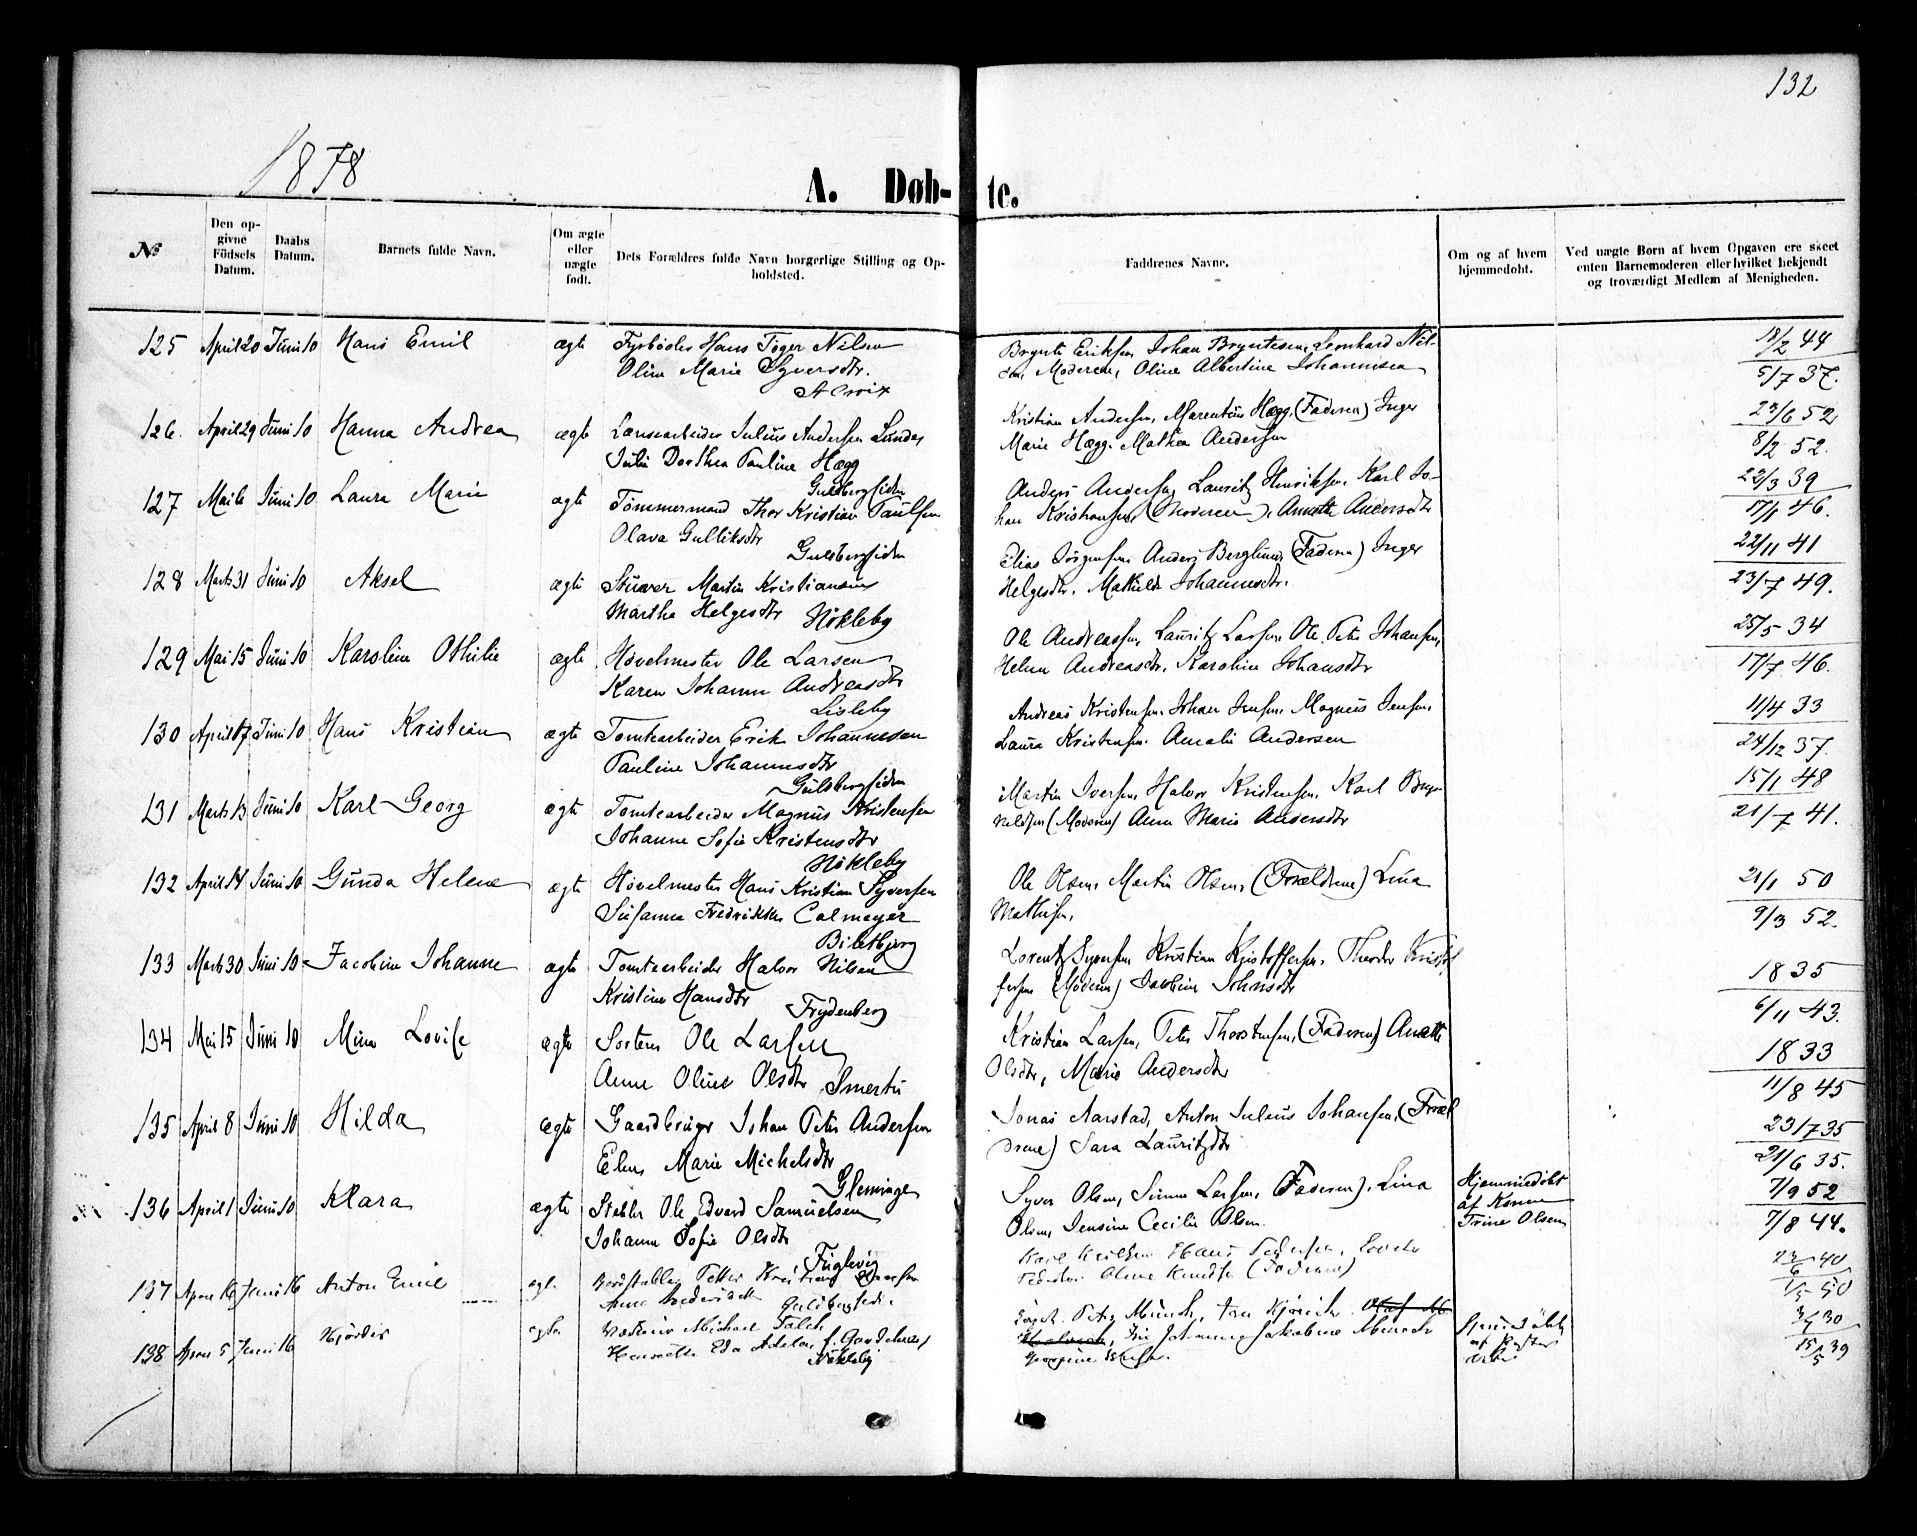 132
1878
A. Døb-
te.
№
Den op-
givne
Födsels
Datum.
Daabs
Datum.
Barnets fulde Navn.
Om ægte
eller
uægte
født.
Dets Forældres fulde Navn borgerlige Stilling og Op-
holdsted.
Faddrenes Navne.
Om og af hvem
hjemmedøbt.
Ved uægte Børn af hvem Opgaven ere skeet
enten Barnemoderen eller hvilket bekjendt
og troværdigt Medlem af Menigheden.
125 April 20 Juni 10 Hans Emil ægte Fyrbøder Hans Töger Nilsen
Oline Marie Syversdtr.
Johan Bryntesen, Leonhard Nil-
sen, Moderen, Oline Albertine Johannesen
18/2 44
5/7 37.
126. April 29 Juni 10 Hanna Andrea ægte Lænsearbeider Julius Andersen Lunde
Julie Dorthea Pauline Hægg
Gulsbergsiden
Kristian Andersen, Marentius Hægg, (Faderen) Inger
Marie Hægg. Mathea Andersen
23/6 52
8/2 52.
127 Mai 6 Juni 10 Laura Marie ægte Tömmermand Thor Kristian Paulsen
Olava Gulliksdtr
Gulsbergsiden
Anders Andersen, Lauritz Henriksen, Karl Jo-
han Kristiansen, (Moderen), Anette Andersdtr
22/3 39
17/1 46.
128 Marts 31 Juni 10 Aksel ægte Stuver Martin Kristiansen
Martha Helgesdtr Nökleby
Elias Jörgensen, Anders Berglund, (Faderen) Inger
Helgesdtr. Mathilde Johannesdtr.
22/11 41
23/7 49.
129 Mai 15 Juni 10 Karoline Othilie ægte Høvelmester Ole Larsen
Karen Johanne Andreasdtr
Lisleby
Ole Andreassen, Lauritz Larsen, Ole Peter Johansen,
Helene Andreasdtr, Karoline Johansdtr
25/5 34
17/7 46.
130 April 17 Juni 10 Hans Kristian ægte Tomtearbeider Erik Johannesen
Pauline Johannesdtr
Gulsbergsiden
Andreas Kristensen, Johan Jensen, Magnus Jensen,
Laura Kristensen. Amalie Andersen
11/4 33
24/12 37.
131 Marts 13 Juni 10 Karl Georg ægte Tomtearbeider Magnus Kristensen
Johanne Sofie Kristensdtr
Nökleby
Martin Iversen, Halvor Kristensen, Karl Bryn-
(Moderen) Anna Marie Andersdtr
15/1 48
21/7 41.
132 April 14 Juni 10 Gunda Helene ægte Høvelmester Hans Kristian Syversen
Susanna Fredrikke Calmeyer
Ole Olsen, Martin Olsen, (Forældrene) Lina
Mathisen,
21/1 50
9/3 52.
133 Marts 30 Juni 10 Jacobine Johanne ægte Tomtearbeider Halvor Nilsen
Kristine Hansdtr Frydenberg
Lorentz Syversen Kristian Kristoffersen, Theodor Kristof
fersen (Moderen) Jacobine Johansdtr
1835
6/11 43.
134 Mai 15 Juni 10 Mina Lovise ægte Sorterer Ole Larsen
Anne Oline Olsdtr Smertu
Kristian Larsen, Peter Thorstensen, (Faderen) Anette
Olsdtr, Marie Andersdtr
1833
11/8 45
135 April 8 Juni 10 Hilda ægte Gaardbruger Johan Peter Andersen
Elene Marie Michelsdtr
Gleminge
Jonas Aarstad, Anton Julius Johansen, (Foræl
drene) Sara Lauritzdtr
23/7 35
21/6 35.
136 April 1 Juni 10 Klara ægte Stabler Ole Edvard Samuelsen
Johanne Sofie Olsdtr
Fuglevig
Syver Olsen, Simen Larsen, (Faderen), Lina
Olsen, Jensine Cecilie Olsen.
Hjemmedöbt
af Konen
Trine Olsen
7/9 52
7/8 44.
137 April 16 Juni 16 Anton Emil ægte Bordstabler Petter Kristian
Karl Hans Pedersen,
Oline Knudsen (Faderen)
40
50
138 April 5 Juni 16 Hjördis ægte Michael Falch
Henriette Eda
Nökleby
Peter Münch,
Johanne Jakobine Münch
30
15/5 39